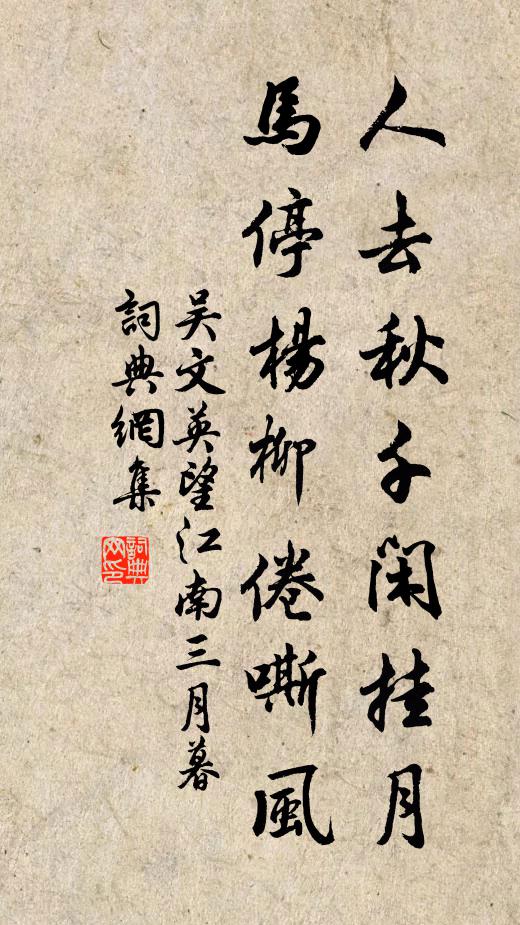 人去秋千閑挂月
馬停楊柳倦嘶風
吴文英望江南三月暮
詞典網集
詞典网印